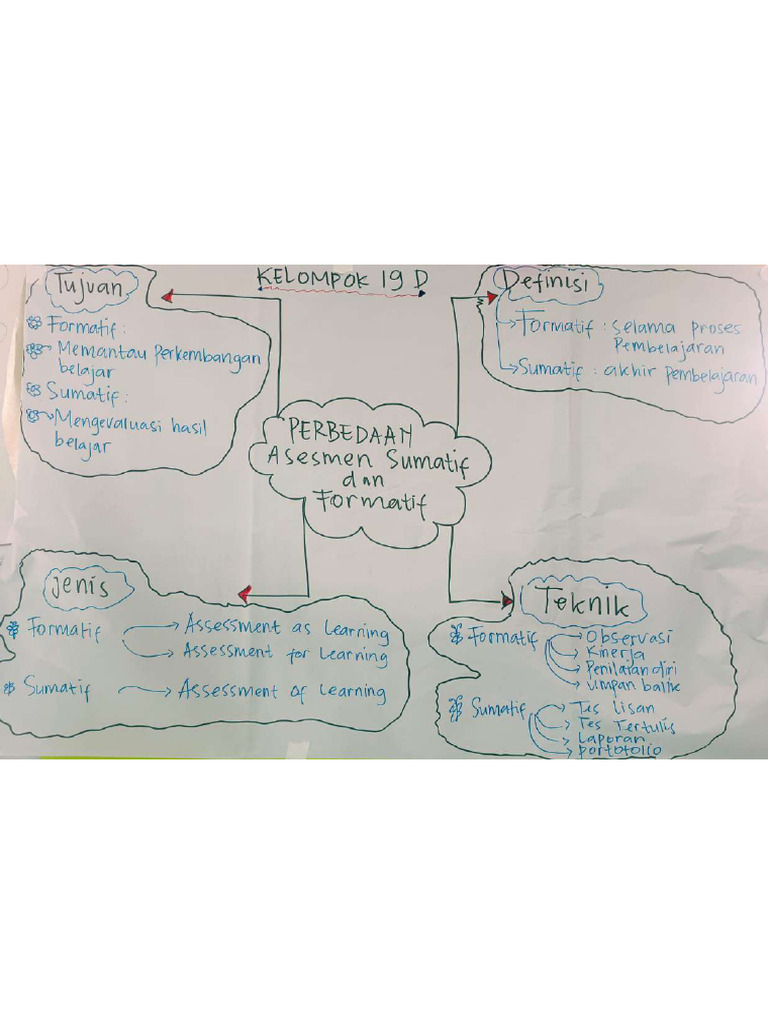 KELOMPOK 19 D
Tujuan
Formatif :
Memantau perkembangan
belajar
Sumatif :
Mengevaluasi hasil
belajar
Definisi
Formatif : Selama proses
Pembelajaran
Sumatif : akhir pembelajaran
PERBEDAAN
Asesmen Sumatif
dan
Formatif
Jenis
Formatif
Assessment as Learning
Assessment for Learning
Sumatif
Assessment Of Learning
Teknik
Formatif
Observasi
Kinerja
Penilaian diri
Umpan balik
Sumatif
Tes Lisan
Tes Tertulis
Laporan
portofolio